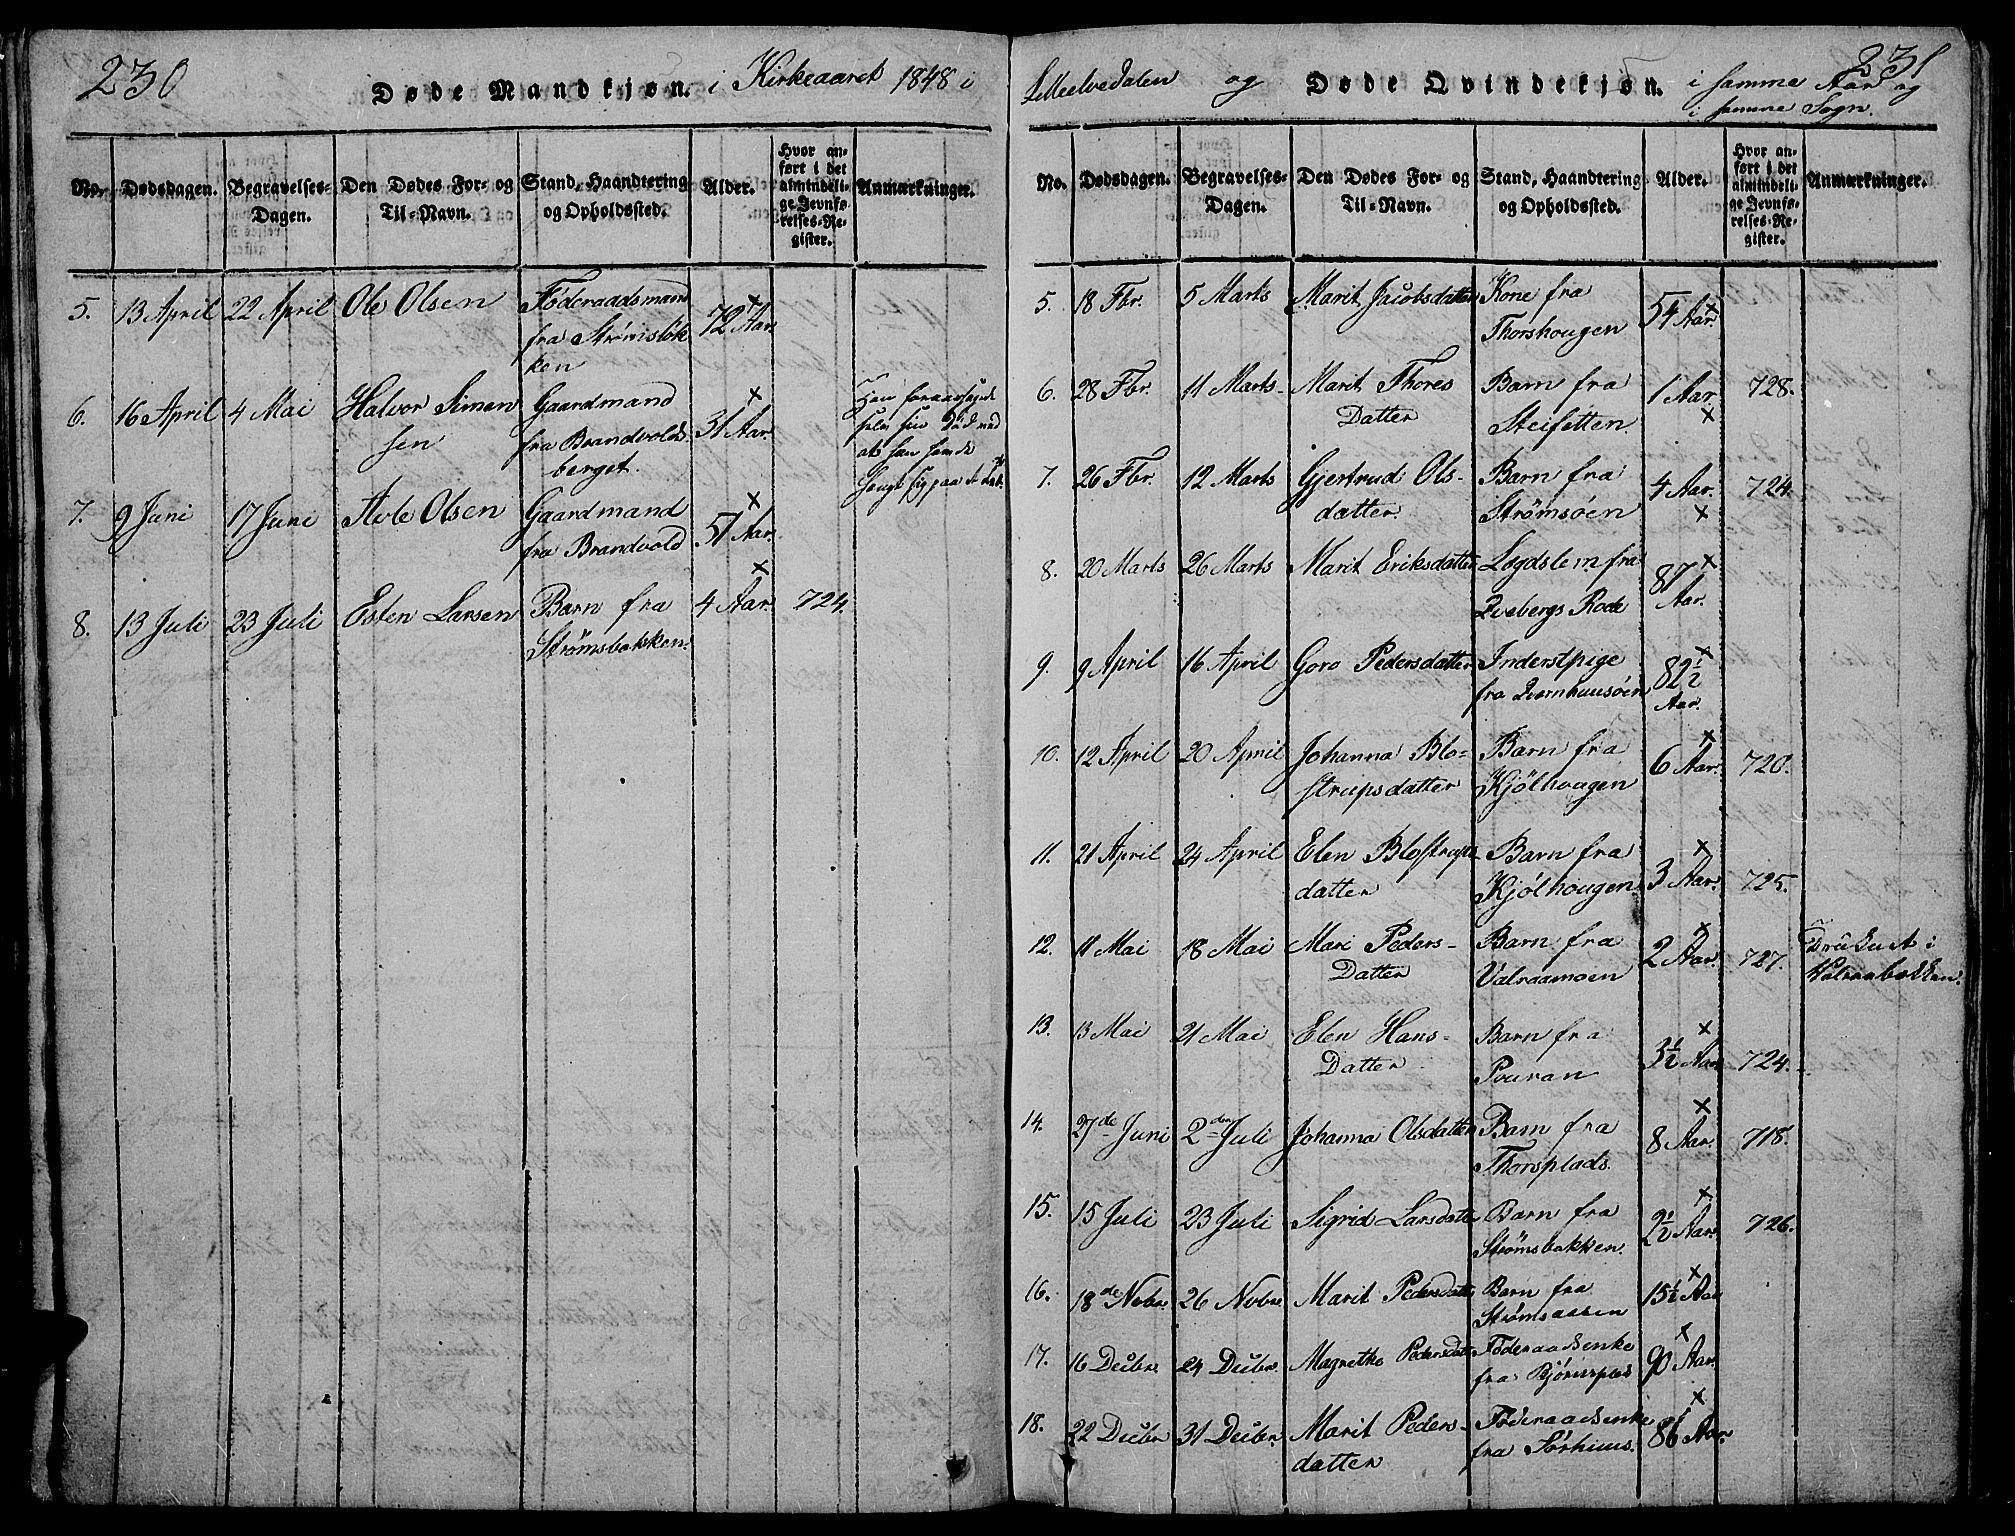 230
Døde Mandkjøn. i Kirkeaaret 1848 i
No. Dødsdagen. Begravelses-Dagen. Den Dødes For- og Til-Navn. Stand, Haandtering og Opholdssted. Alder. Hvor anført i det almindelige Jevnførelses-Register. Anmærkninger.
5. 13 April 22 April Ole Olsen Føderaadsmand 72 Aar. ×
fra Strømsløk
ken
6. 16 April 4 Mai Halvor Simen Gaardmand 31 Aar. × Han foraarsagede
sen fra Brandvolds selv sin Død ved
berget. at han havde
7. 9 Juni 17 Juni Avle Olsen Gaardmand 51 Aar. ×
fra Brandvold
8. 13 Juli 23 Juli Esten Larsen Barn fra 4 Aar. × 724.
Strømsbakken.
231
Lilleelvedalen og Døde Qvindekjøn. i samme Aar og
i samme Sogn.
No. Dødsdagen. Begravelses-Dagen. Den Dødes For- og Til-Navn. Stand, Haandtering og Opholdssted. Alder. Hvor anført i det almindelige Jevnførelses-Register. Anmærkninger.
5. 18 Fbr. 5 Marts Marit Jacobsdatter Kone fra 54 Aar. ×
Thorshougen
6. 28 Fbr. 11 Marts Marit Thores Barn fra 1 Aar. × 728.
Datter Steifetten.
7. 26 Fbr. 12 Marts Gjertrud Ols- Barn fra 4 Aar. × 724.
datter. Strømsøen
8. 20 Marts 26 Marts Marit Eriksdatter Lægdslem fra 87 ×
Qvebergs Rode Aar.
9. 9 April 16 April Goro Pedersdatter Inderstpige 82½ ×
fra Qvernhuusøen Aar.
10. 12 April 20 April Johanna Blo- Barn fra 6 Aar. × 720.
strupsdatter Kjølhougen
11. 21 April 24 April Elen Blostrups Barn fra 3 Aar. × 725.
datter Kjølhougen.
12. 11 Mai 18 Mai Mari Peders- Barn fra 2 Aar. × 727. Druknet i
Datter Valsaamoen
13. 13 Mai 21 Mai Elen Hans- Barn fra 3½ Aar. × 724.
Datter Pouran
14. 27de Juni 2den Juli Johanna Olsdatter Barn fra 8 Aar. × 718.
Thorsplads.
15. 15 Juli 23 Juli Sigrid Larsdatter Barn fra 2½ Aar. × 726.
Strømsbakken.
16. 18de Novbr. 26 Novbr. Marit Pedersdatter Barn fra 15½ Aar ×
Strømsaasen
17. 16 Decbr. 24 Decbr. Magrethe Pedersdatter Føderaadsenke 90 Aar. ×
fra
18. 22 Decbr. 31 Decbr. Marit Peders- Føderaadsenke 86 Aar. ×
datter fra Sørhuus.